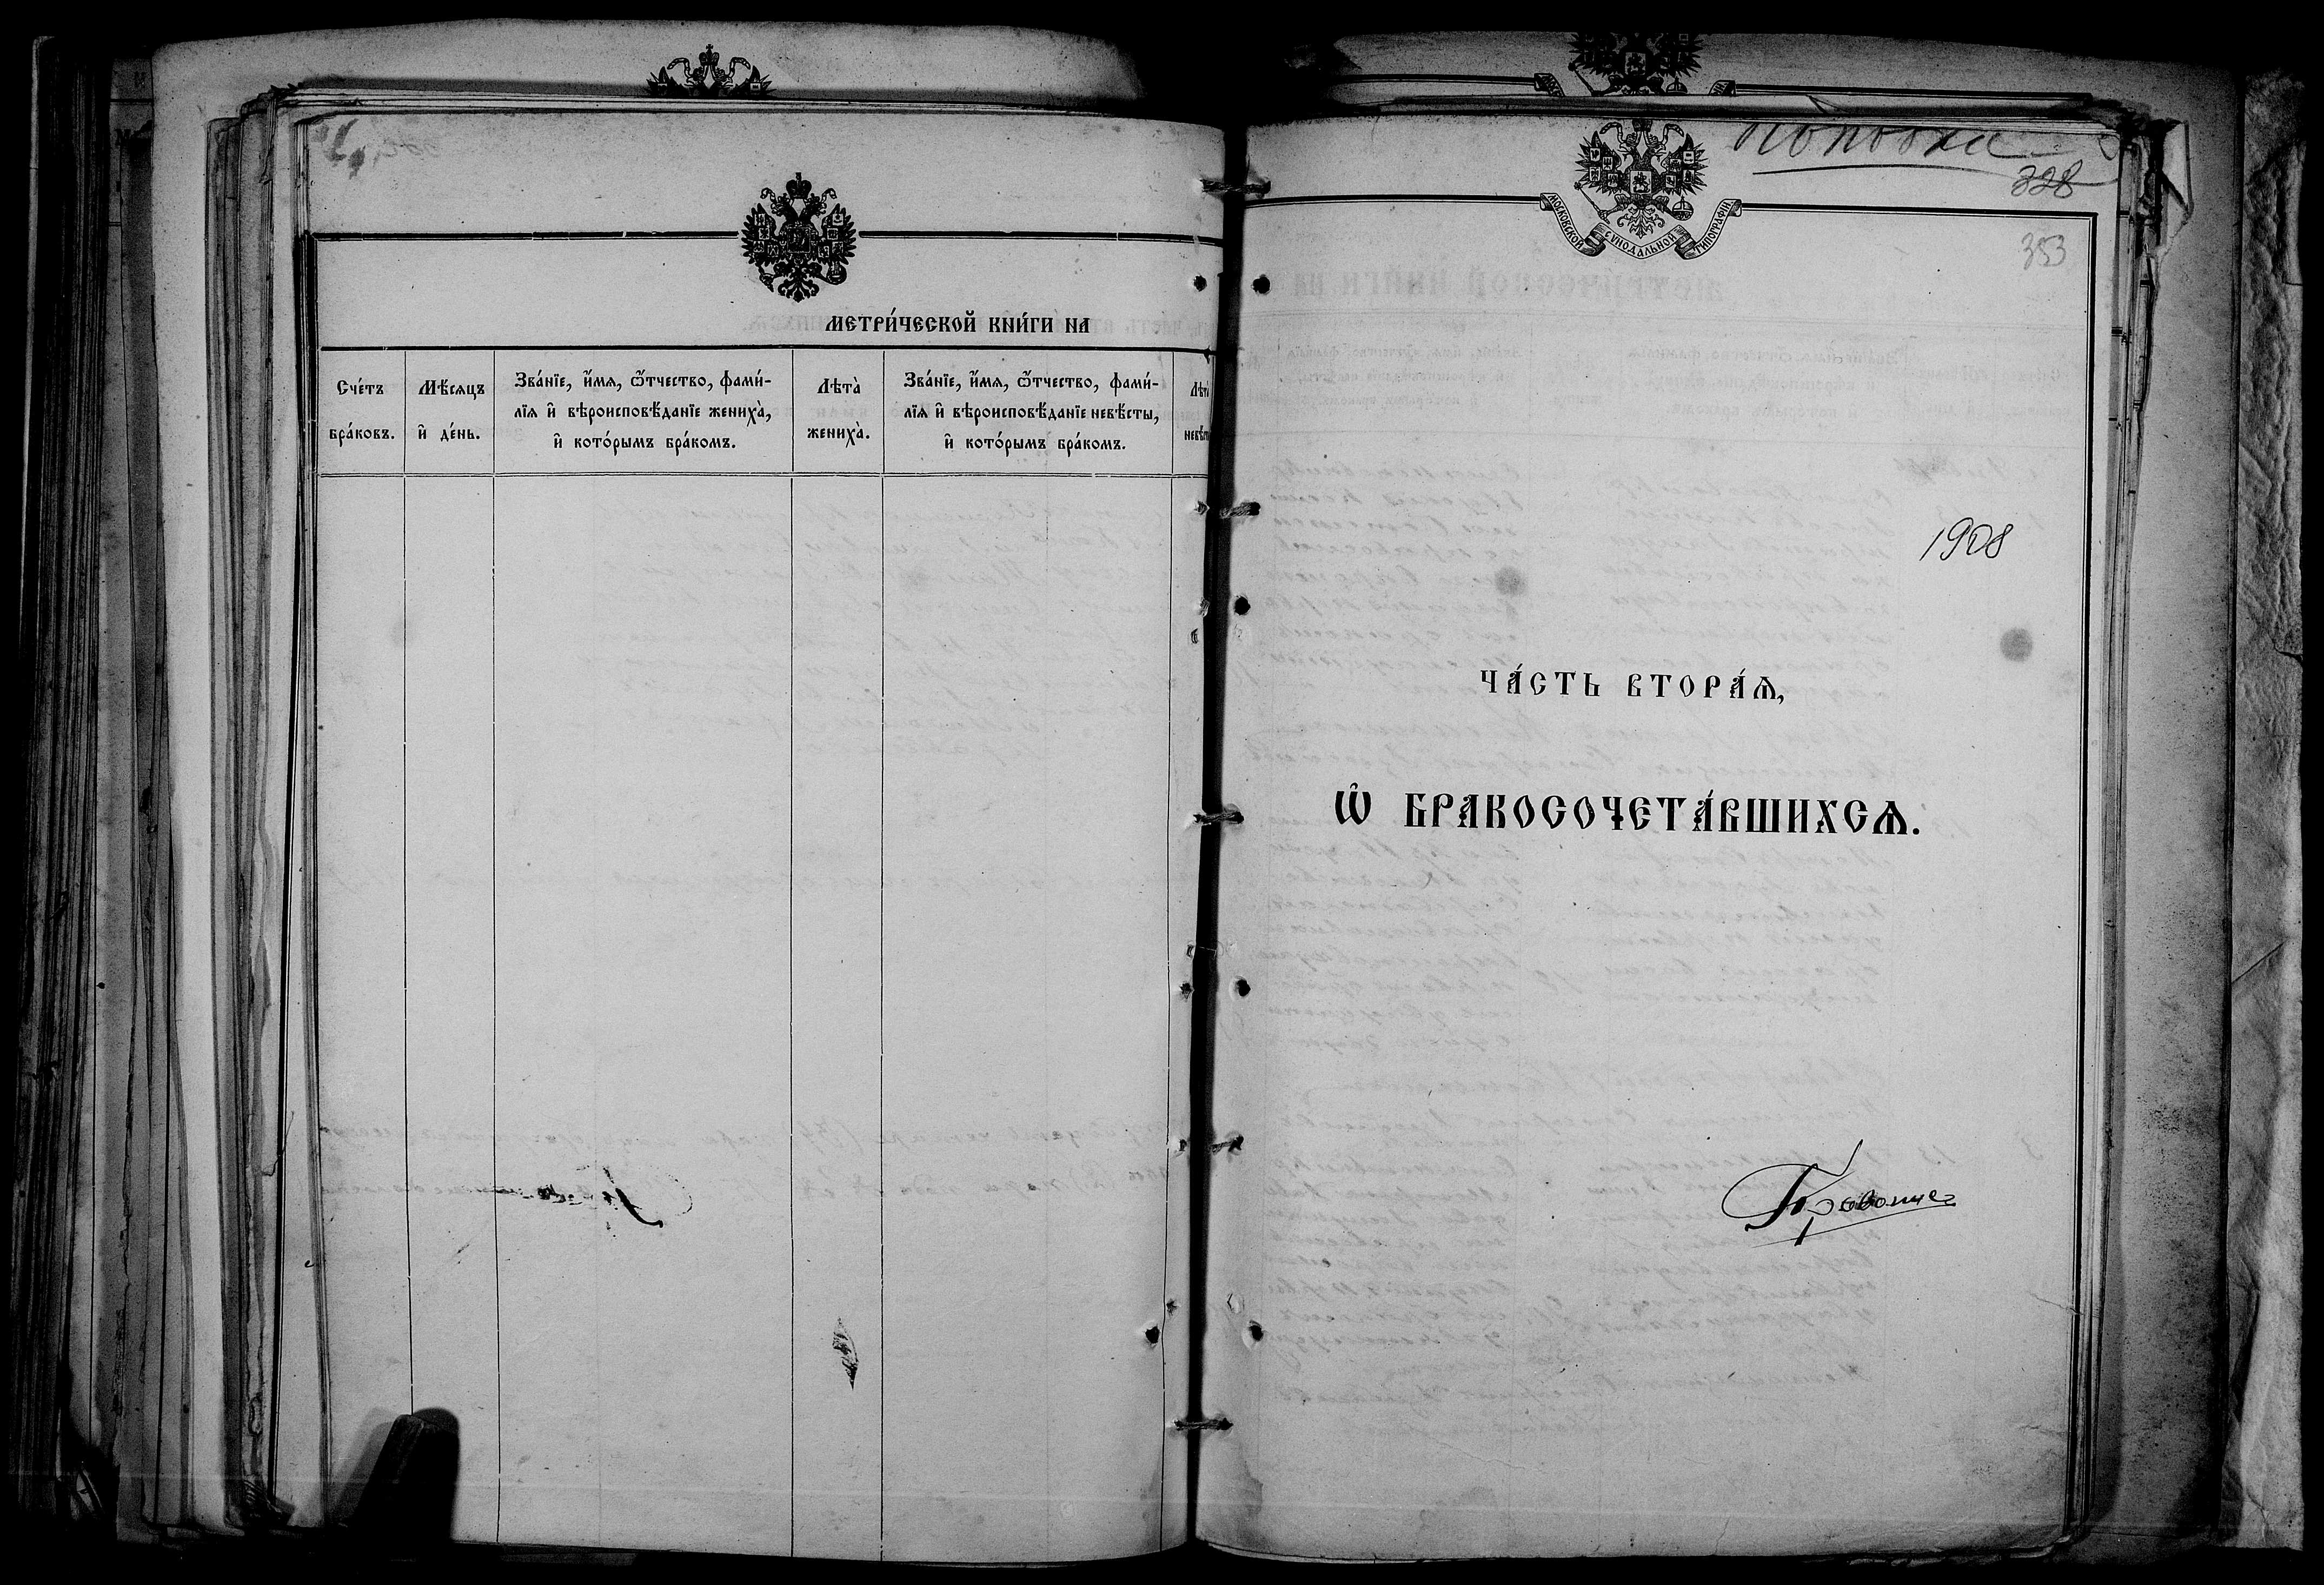 МЕТРИ́ЧЕСКОЙ КНИ́ГИ НА
Сче́тъ
бра́ковъ.
Мѣ́сяцъ
и҆ де́нь.
Зва́нїе, и҆́мя, ѻ҆́тчество, фами́-
лїя и҆ вѣроисповѣ́данїе жениха̀,
и҆ кото́рымъ бра́комъ.
Лѣта̀
жениха̀.
Зва́нїе, и҆́мя, ѻ҆́тчество, фами́-
лїя и҆ вѣроисповѣ́данїе невѣ́сты,
и҆ кото́рымъ бра́комъ.
Лѣта̀
Поповка
328
МОСКОВСКОЙ СѴНОДАЛЬНОЙ ТИПОГРАФІИ
353
1908
ЧА́СТЬ ВТОРА́Ѧ,
Ѡ҆ БРАКОСОЧЕТА́ВШИХСѦ.